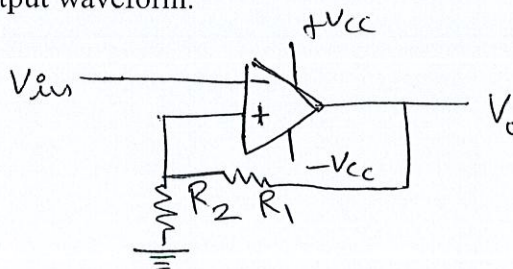 put waveform.
+Vcc
Vin
-
+
Vo
-Vcc
R2 R1